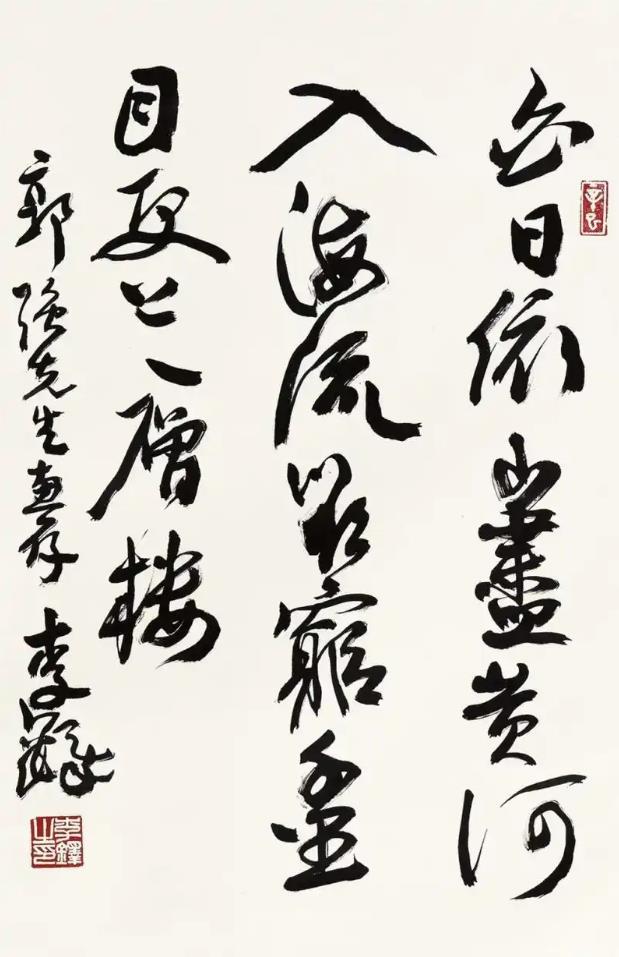 白日依山盡黄河
入海流欲窮千里
目更上一層樓
郭强先生惠存 李鐸
辛巳
李鐸之印